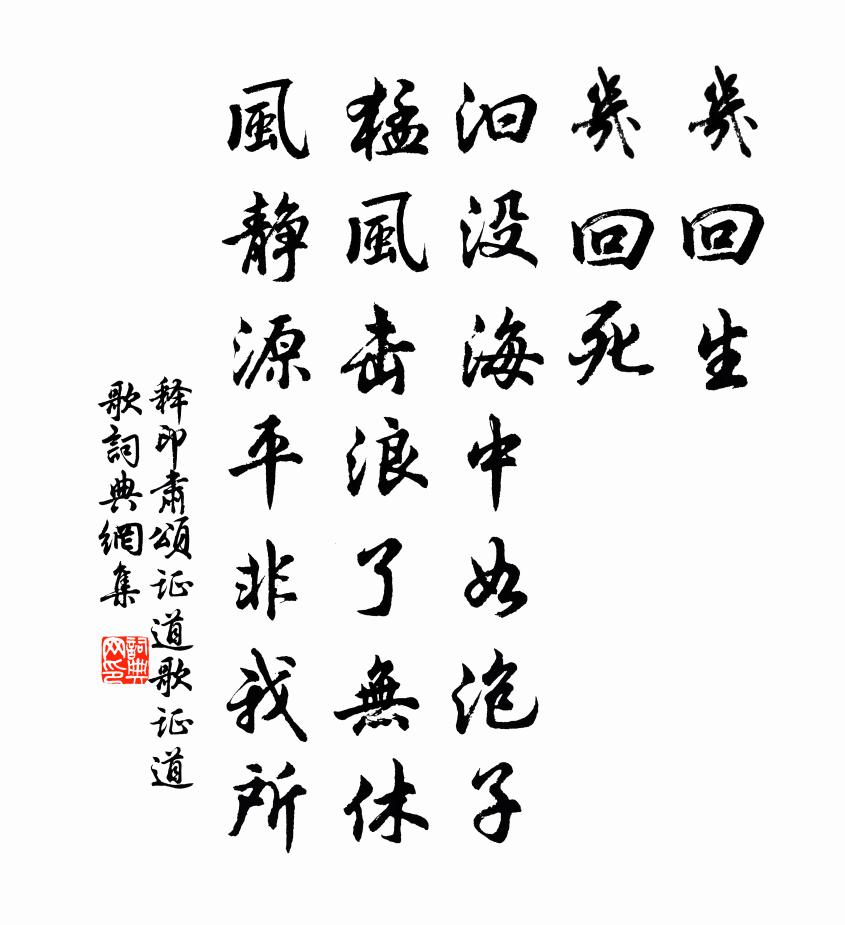 幾回生
幾回死
汩没海中如泡子
猛風击浪了無休
風静源平非我所
释印肅頌证道歌证道
歌詞典網集
詞典
网印